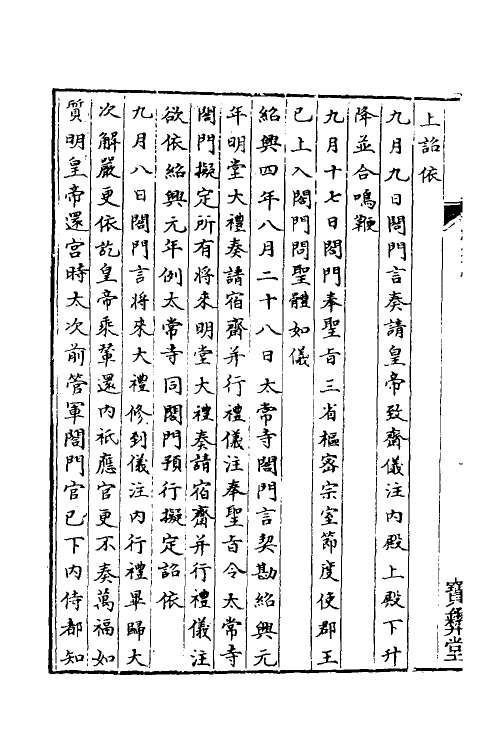 上詔依
九月九日閤門言奏請皇帝致齋儀注内殿上殿下升
降並合鳴鞭
九月十七日閤門奉聖旨三省樞密宗室節度使郡王
已上入閤門問聖體如儀
紹興四年八月二十八日太常寺閤門言契勘紹興元
年明堂大禮奏請宿齋并行禮儀注奉聖旨令太常寺
閤門擬定所有將來明堂大禮奏請宿齋并行禮儀注
欲依紹興元年例太常寺同閤門預行擬定詔依
九月八日閤門言將來大禮修到儀注内行禮畢歸大
次解嚴更依訖皇帝乘輦還内祇應官更不奏萬福如
質明皇帝還宫時太次前管軍閤門官已下内侍都知
寶彝堂